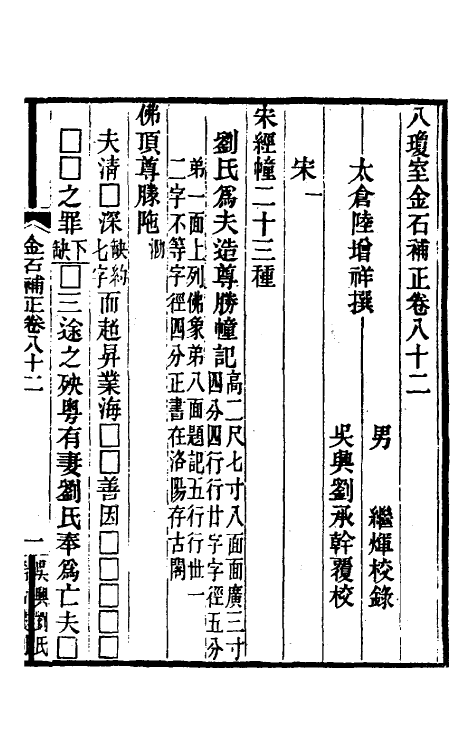 八瓊室金石補正卷八十二
太倉陸增祥撰
男　繼煇校錄
吳興劉承幹覆校
宋一
宋經幢二十三種
劉氏爲夫造尊勝幢記高二尺七寸八面面廣三寸四分四行行廿字字徑五分
弟一面上列佛象弟八面題記五行行世一二字不等字徑四分正書在洛陽存古閣
佛頂尊勝陁泐
夫淸□深缺約七字而趂昇業海□□善因□□□□□
□□之罪下缺□三途之殃粤有妻劉氏奉爲亡夫□
金石補正卷八十二
一
吳興劉氏